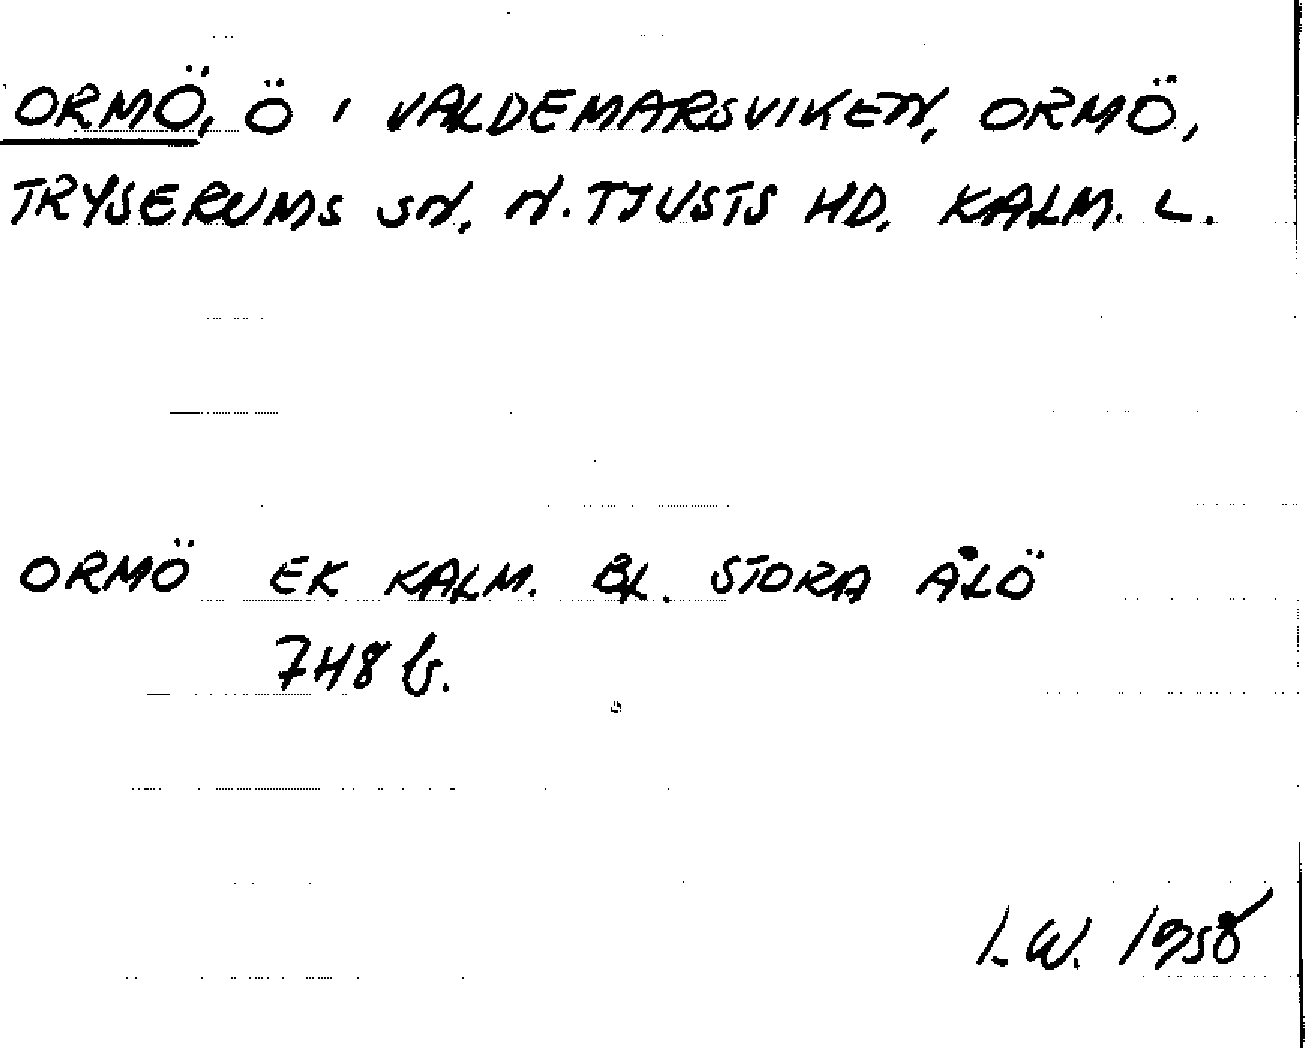 ORMÖ, Ö I VALDEMARSVIKEN, ORMÖ,
TRYSERUMS SN, N. TJUSTS HD, KALM. L.
ORMÖ EK KALM. BL. STORA ÅLÖ
748 b.
I. W. 1958